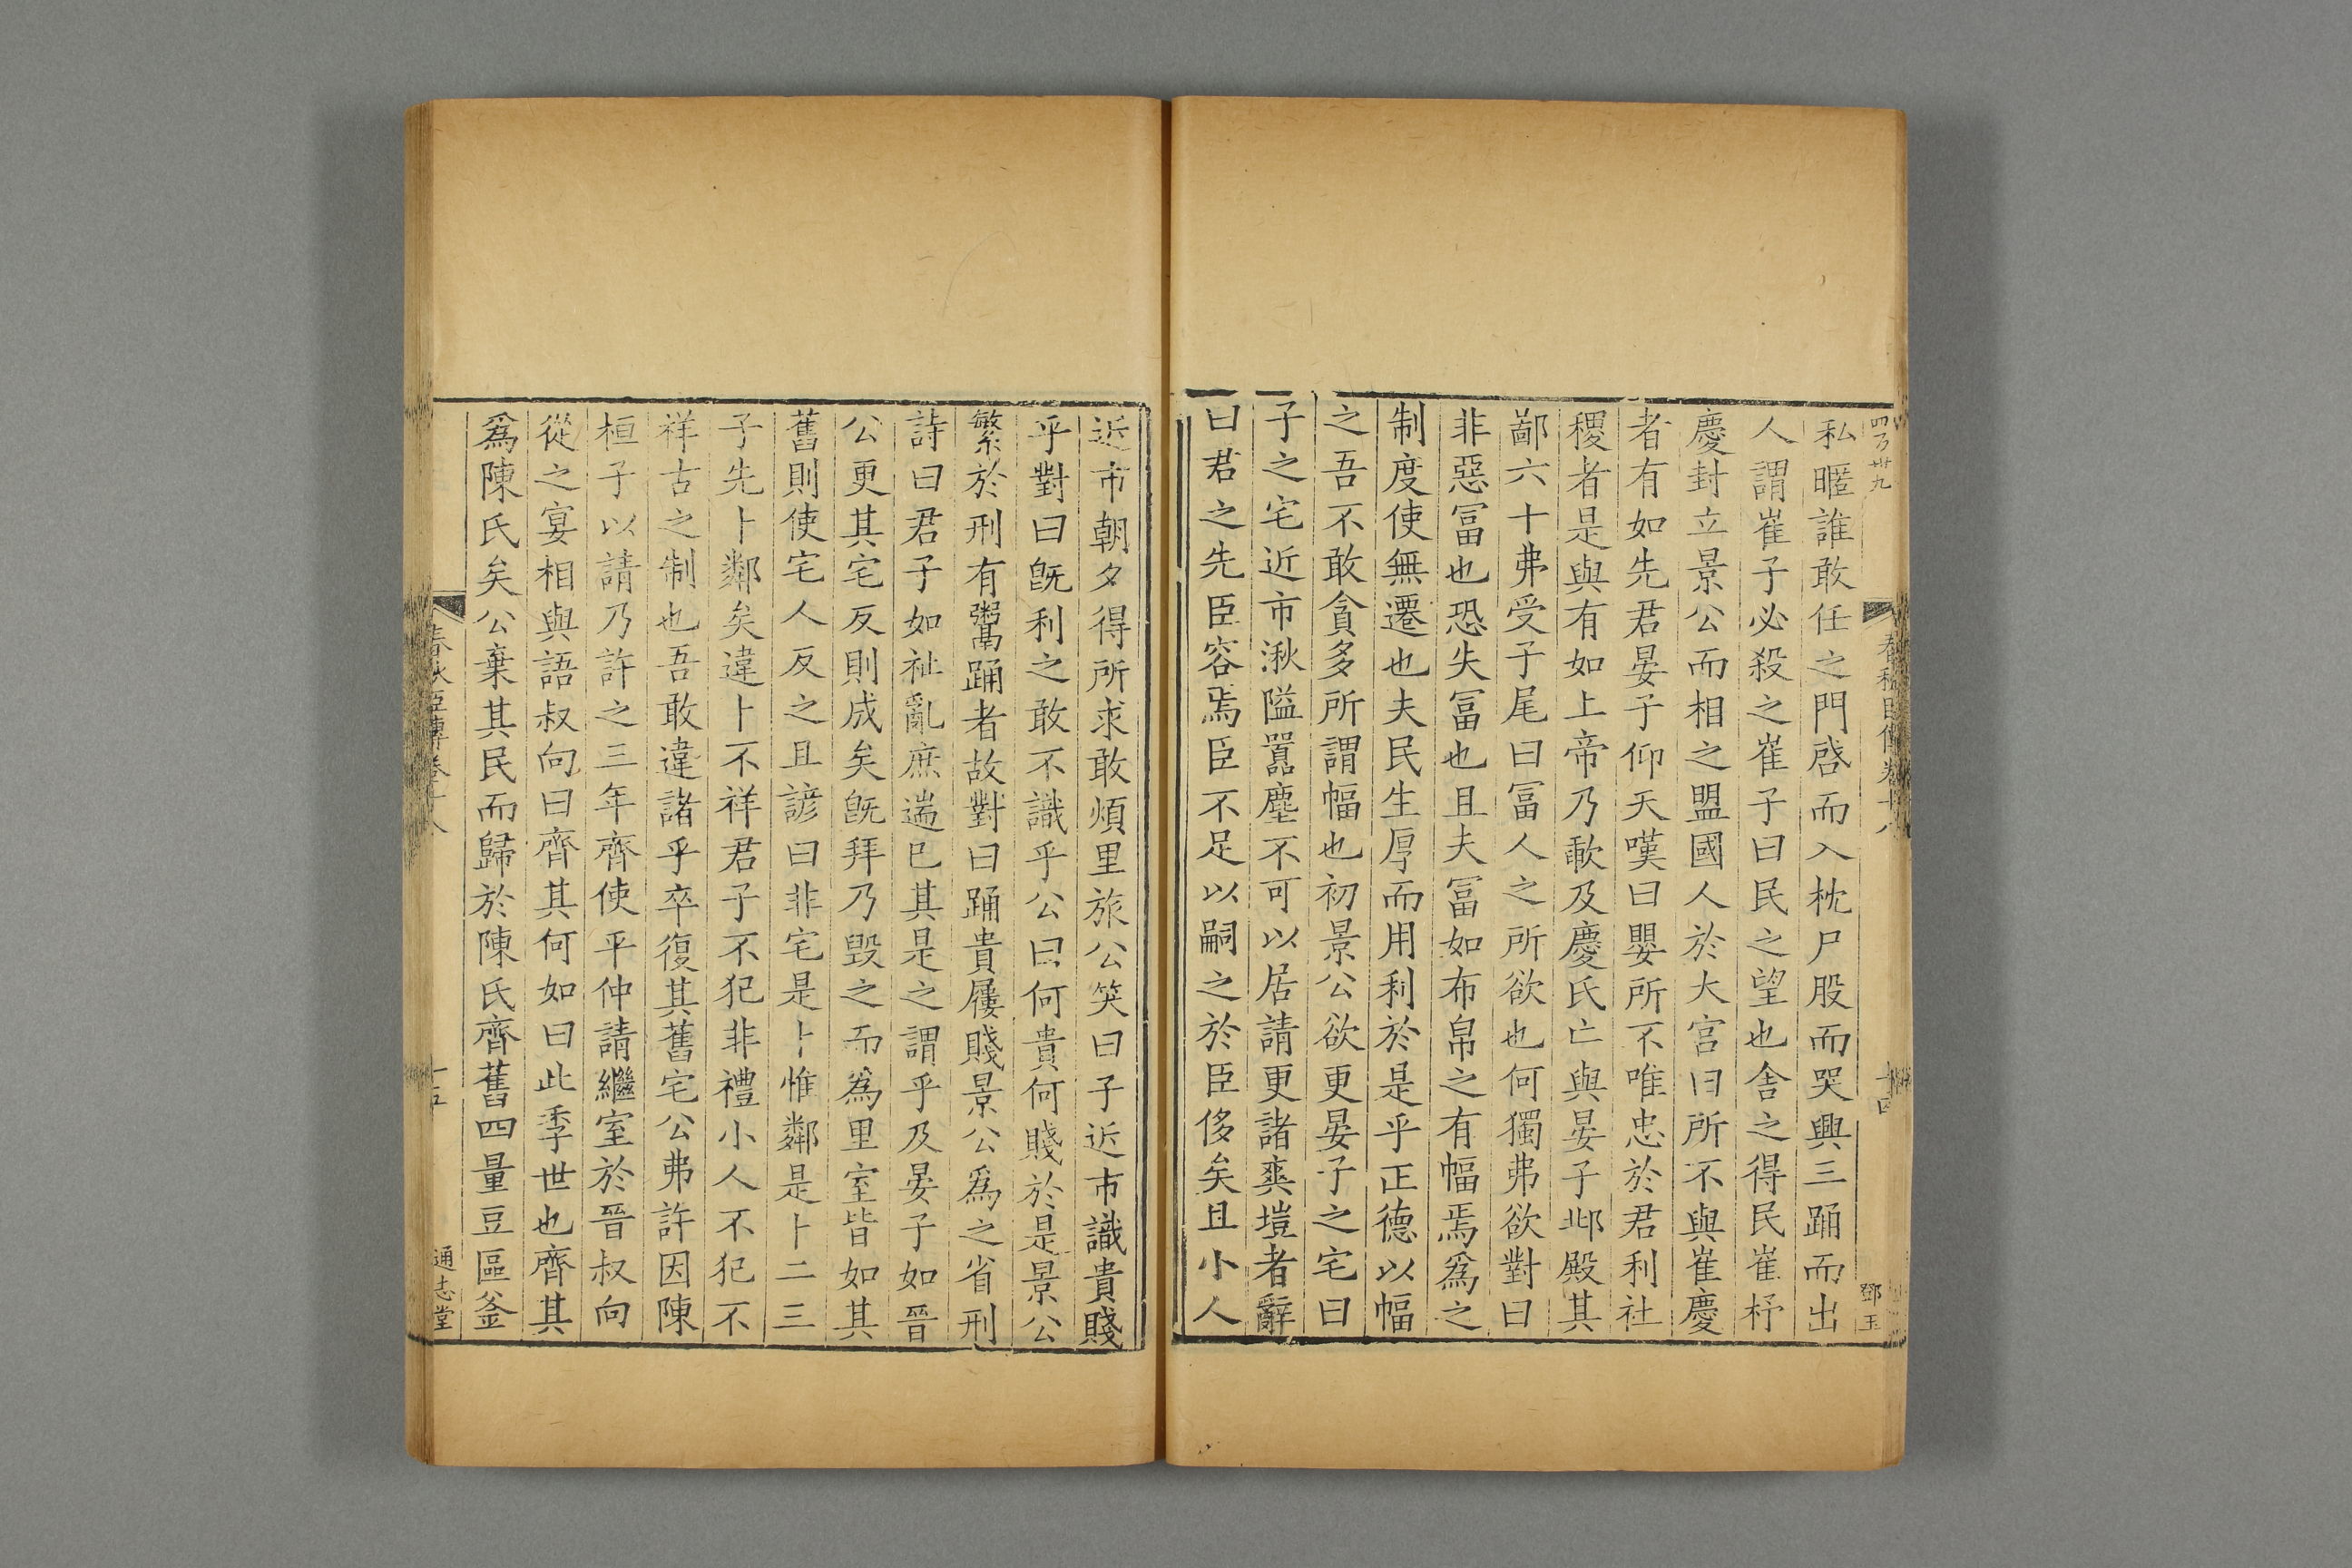 四百卅九
春秋臣傳卷十八
十四
鄧玉
私暱誰敢任之門啓而入枕尸股而哭興三踊而出
人謂崔子必殺之崔子曰民之望也舍之得民崔杼
慶封立景公而相之盟國人於大宫曰所不與崔慶
者有如先君晏子仰天嘆曰嬰所不唯忠於君利社
稷者是與有如上帝乃歃及慶氏亡與晏子邶殿其
鄙六十弗受子尾曰冨人之所欲也何獨弗欲對曰
非惡冨也恐失冨也且夫冨如布帛之有幅焉爲之
制度使無遷也夫民生厚而用利於是乎正德以幅
之吾不敢貪多所謂幅也初景公欲更晏子之宅曰
子之宅近市湫隘囂塵不可以居請更諸爽塏者辭
曰君之先臣容焉臣不足以嗣之於臣侈矣且小人
近市朝夕得所求敢煩里旅公笑曰子近市識貴賤
乎對曰旣利之敢不識乎公曰何貴何賤於是景公
繁於刑有鬻踊者故對曰踊貴屨賤景公爲之省刑
詩曰君子如祉亂庶遄已其是之謂乎及晏子如晉
公更其宅反則成矣旣拜乃毁之而爲里室皆如其
舊則使宅人反之且諺曰非宅是卜惟鄰是卜二三
子先卜鄰矣違卜不祥君子不犯非禮小人不犯不
祥古之制也吾敢違諸乎卒復其舊宅公弗許因陳
桓子以請乃許之三年齊使平仲請繼室於晉叔向
從之宴相與語叔向曰齊其何如曰此季世也齊其
爲陳氏矣公棄其民而歸於陳氏齊舊四量豆區釜
春秋臣傳卷十八
十五
通志堂